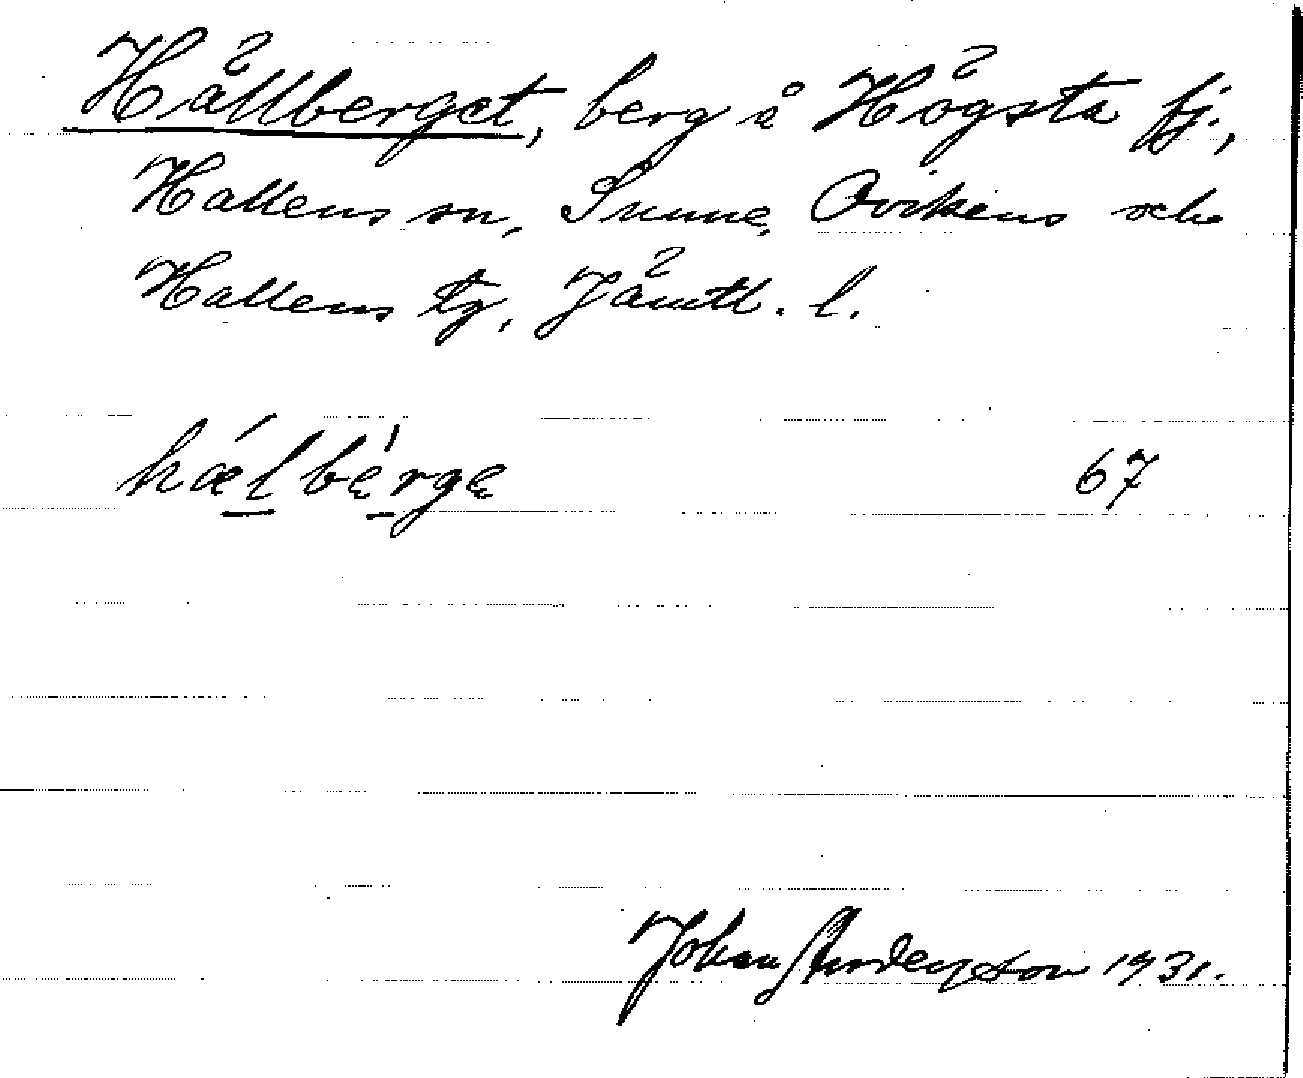 Hällberget, berg å Högsta fj.,
Hallens sn, Sunne, Ovikens och
Hallens tg, Jämtl. l.
hælbèrgę 67
Johan Anderson 1931.